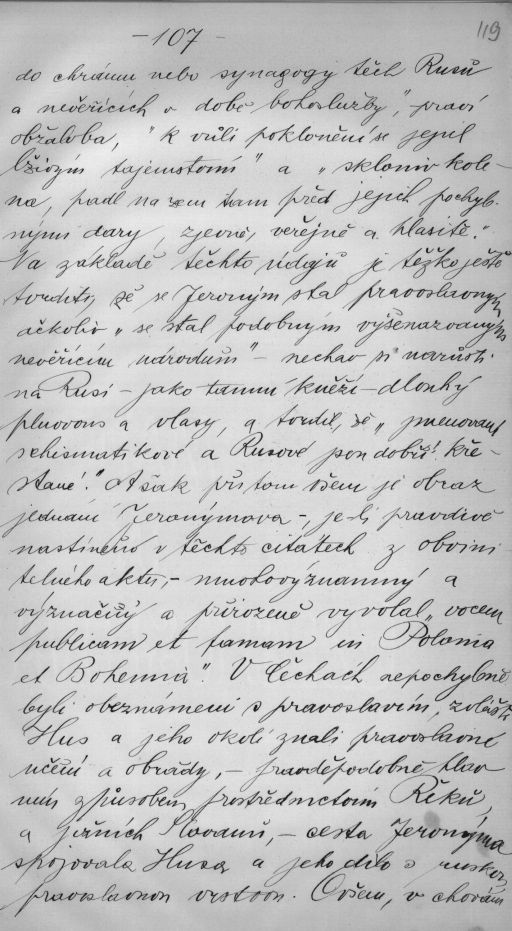 - 107 -
119
do chrámu nebo synagogy těch Rusů
a nevěřících v době bohoslužby", praví
obžaloba, "k vůli poklonění se jejich
lživým tajemstvím" a "skloniv kole-
na, padl na zem tam před jejich pochyb-
nými dary, zjevně, veřejně a hlasitě."
Na základě těchto údajů je těžko ještě
tvrditi, že se Jeroným stal pravoslavným
ačkoliv "se stal podobným výšenazvaným
nevěřícím národům" - nechav si narůsti
na Rusi - jako tamní kněží - dlouhý
plnovous a vlasy, a tvrdil, že "jmenovaní
schismatikové a Rusové jsou dobří kře-
sťané." Avšak při tom všem je obraz
jednání Jeronýmova -, je-li pravdivě
nastíněno v těchto citátech z obvini-
telného aktu, - mnohovýznamný a
význačný a přirozeně vyvolal "vocem
publicam et famam in Polonia
et Bohemia". V Čechách nepochybně
byli obeznámeni s pravoslavím, zvláště
Hus a jeho okolí znali pravoslavné
učení a obřady, - pravděpodobně hlav-
ním způsobem prostřednictvím Řeků,
a jižních Slovanů, - cesta Jeronýma
spojovala Husa a jeho dílo s ruskou
pravoslavnou vrstvou. Ovšem, v chování